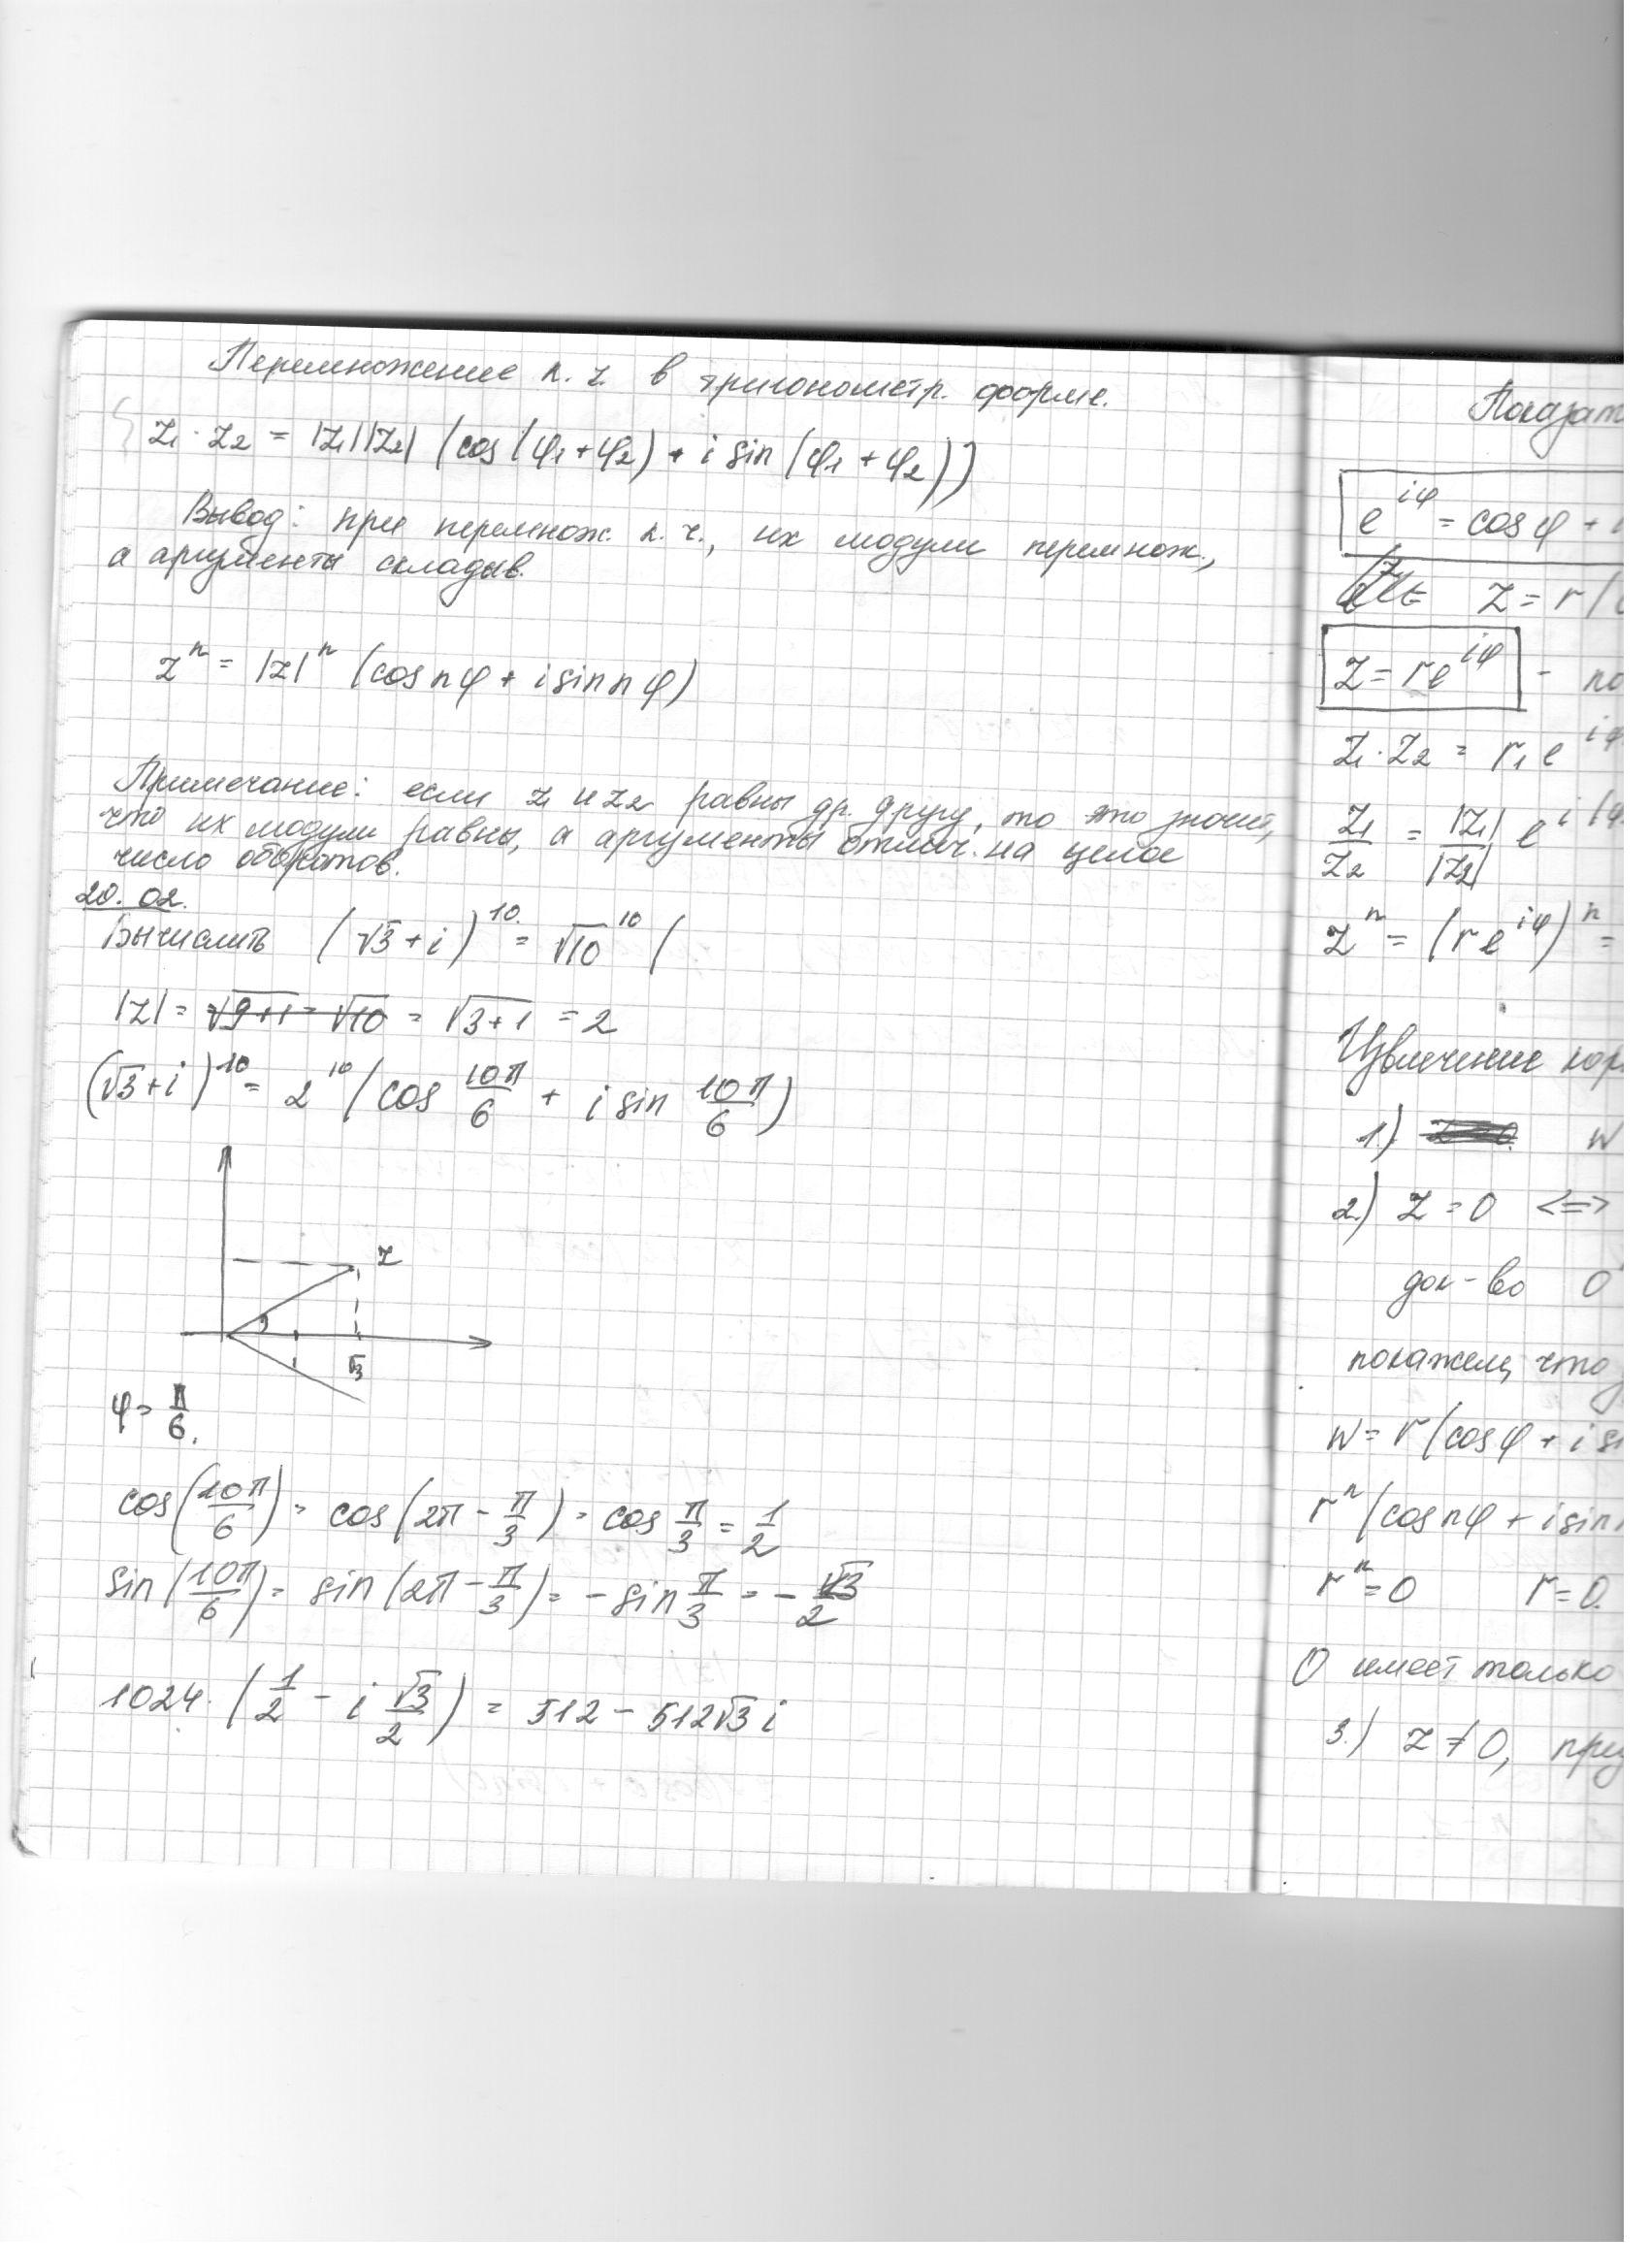 Перемножение к. ч. в тригонометр. форме.
z₁ · z₂ = |z₁||z₂| (cos(φ₁+φ₂) + i sin(φ₁+φ₂))
Вывод: при перемнож. к. ч., их модули перемнож.,
а аргументы складыв.
zⁿ = |z|ⁿ (cos nφ + i sin nφ)
Примечание: если z₁ и z₂ равны др. другу, то это значит,
что их модули равны, а аргументы отлич. на целое
число оборотов.
20. 02.
Вычислить (√3 + i)¹⁰ = √10¹⁰ (
|z| = √9+1 = √10 = √3+1 = 2
(√3+i)¹⁰ = 2¹⁰ (cos 10π/6 + i sin 10π/6)
z
√3
φ = π/6.
cos(10π/6) = cos(2π - π/3) = cos π/3 = 1/2
sin(10π/6) = sin(2π - π/3) = -sin π/3 = -√3/2
1024 · (1/2 - i √3/2) = 512 - 512√3 i
Показат
e^iφ = cos φ +
z = r(
z = re^iφ - по
z₁ · z₂ = r₁ e^iφ
z₁/z₂ = |z₁|/|z₂| e^i(φ
zⁿ = (r e^iφ)ⁿ =
Извлечение кор
1.) w
2.) z = 0 <=>
док-во 0
покажем, что
w = r (cos φ + i si
rⁿ (cos nφ + i sin
rⁿ = 0 r = 0.
0 имеет только
3.) z ≠ 0, пру